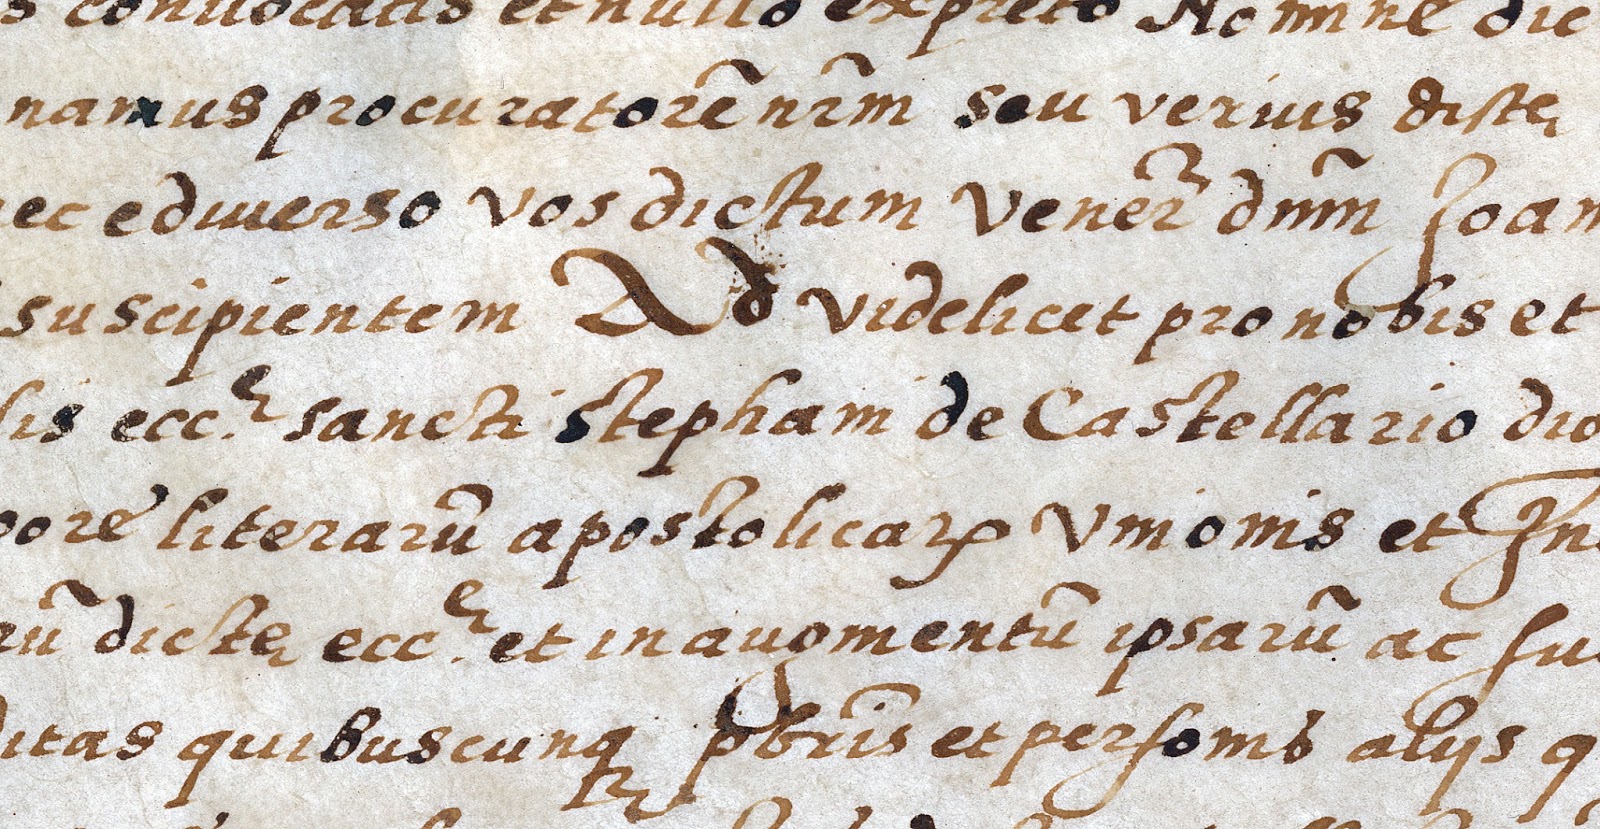 s conuocatis et nullo expreso Nomine dic
namus procuratorē nr̃m seu verius dictę
nec e diuerso vos dictum Vener̃ dnm̃ Joan
suscipientem Ad videlicet pro nobis et
lis ecc.ę sancti stephani de Castellario dio
pore literarũ apostolicarꝝ Vnionis et In
rũ dictę ecc.ę et in augmentũ ipsarũ ac su
ditas quibuscunqꝫ pbrĩs et personis alijs q